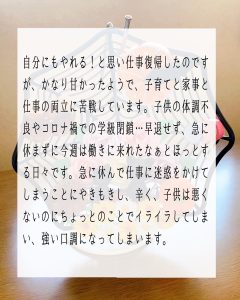 自分にもやれる！と思い仕事復帰したのです
が、かなり甘かったようで、子育てと家事と
仕事の両立に苦戦しています。子供の体調不
良やコロナ禍での学級閉鎖…早退せず、急に
休まずに今週は働きに来れたなぁとほっとす
る日々です。急に休んで仕事に迷惑をかけて
しまうことにやきもきし、辛く、子供は悪く
ないのにちょっとのことでイライラしてしま
い、強い口調になってしまいます。